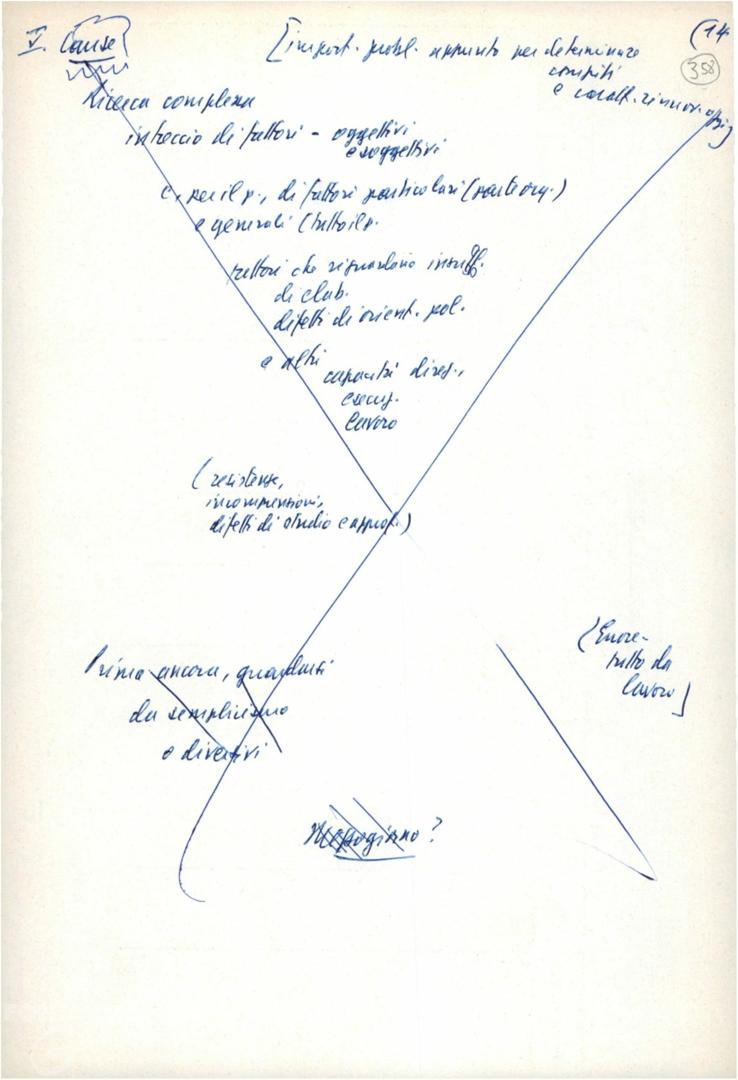 V. Cause
(14
358
[import. probl. appunto per determinare
compiti
e caratt. rinnov. opz.]
Ricerca complessa
intreccio di fattori - oggettivi
e soggettivi
e, per il p., di fattori particolari (parte org.)
e generali (tutto il p.
fattori che riguardano insuff.
di elab.
difetti di orient. pol.
e altri
capacità direz.,
esecuz.
lavoro
(resistenze,
incomprensioni,
difetti di studio e approf.)
Prima ancora, guardarsi
da semplicismo
o diversivi
[Enorme
tutto da
lavoro]
Mezzogiorno?